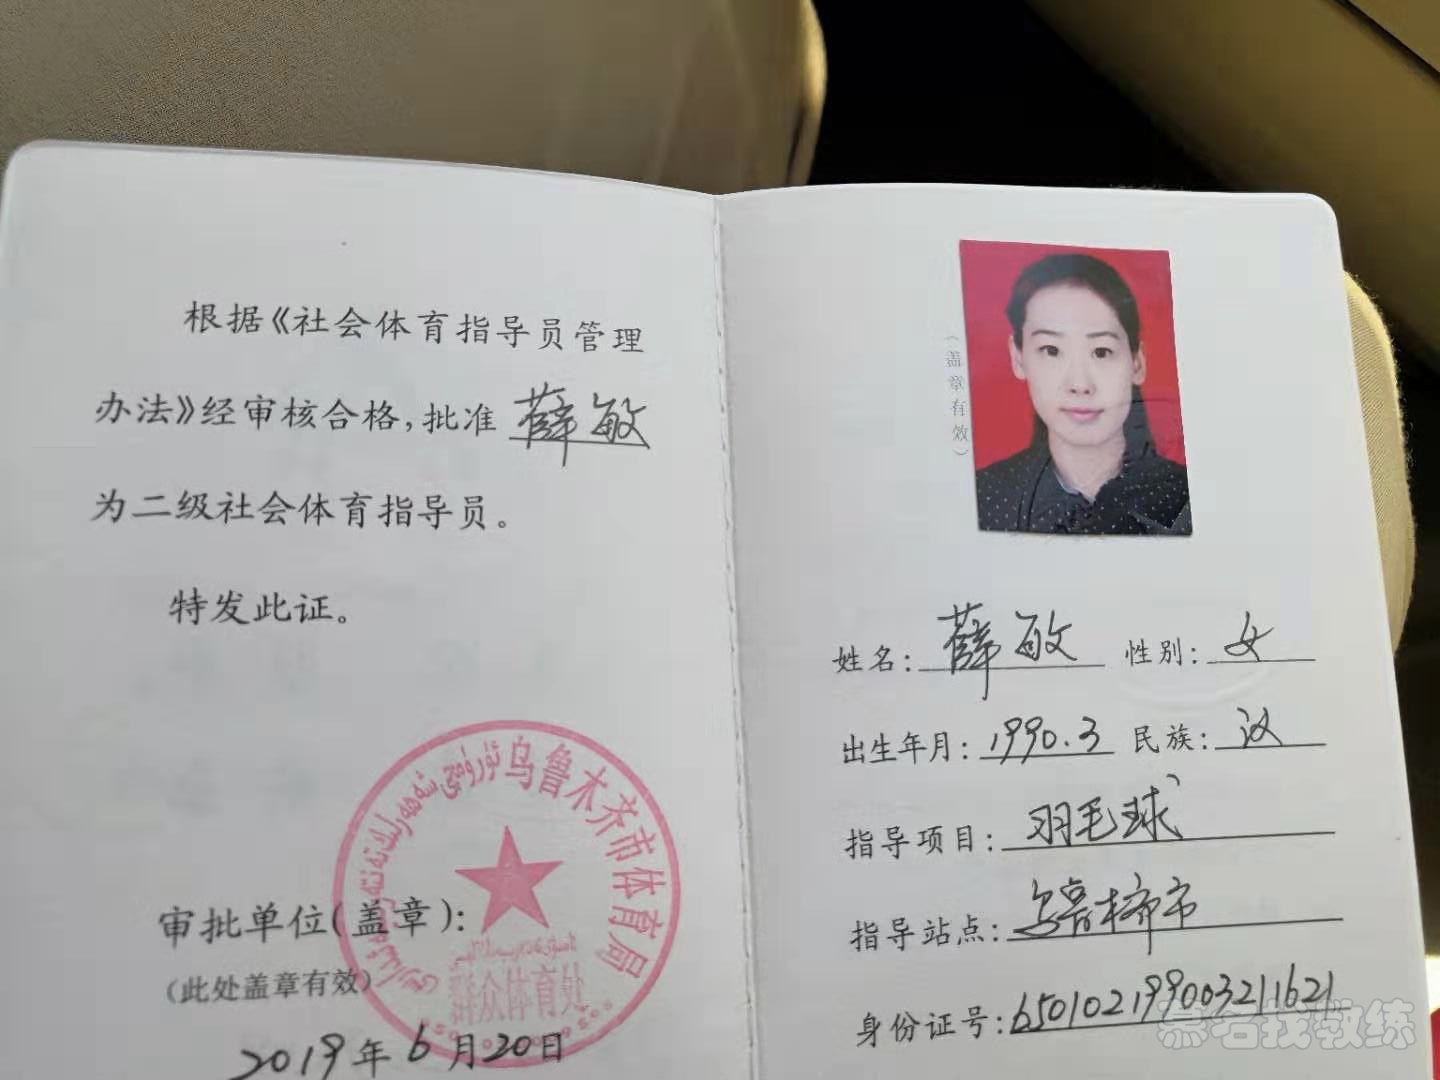 根据《社会体育指导员管理
办法》经审核合格，批准 薛敏
为二级社会体育指导员。
特发此证。
乌鲁木齐市体育局
群众体育处
审批单位(盖章)：
(此处盖章有效)
2019年6月20日
(盖章有效)
姓名：薛敏 性别：女
出生年月：1990.3 民族：汉
指导项目：羽毛球
指导站点：乌鲁木齐市
身份证号：650102199003211621
找教练